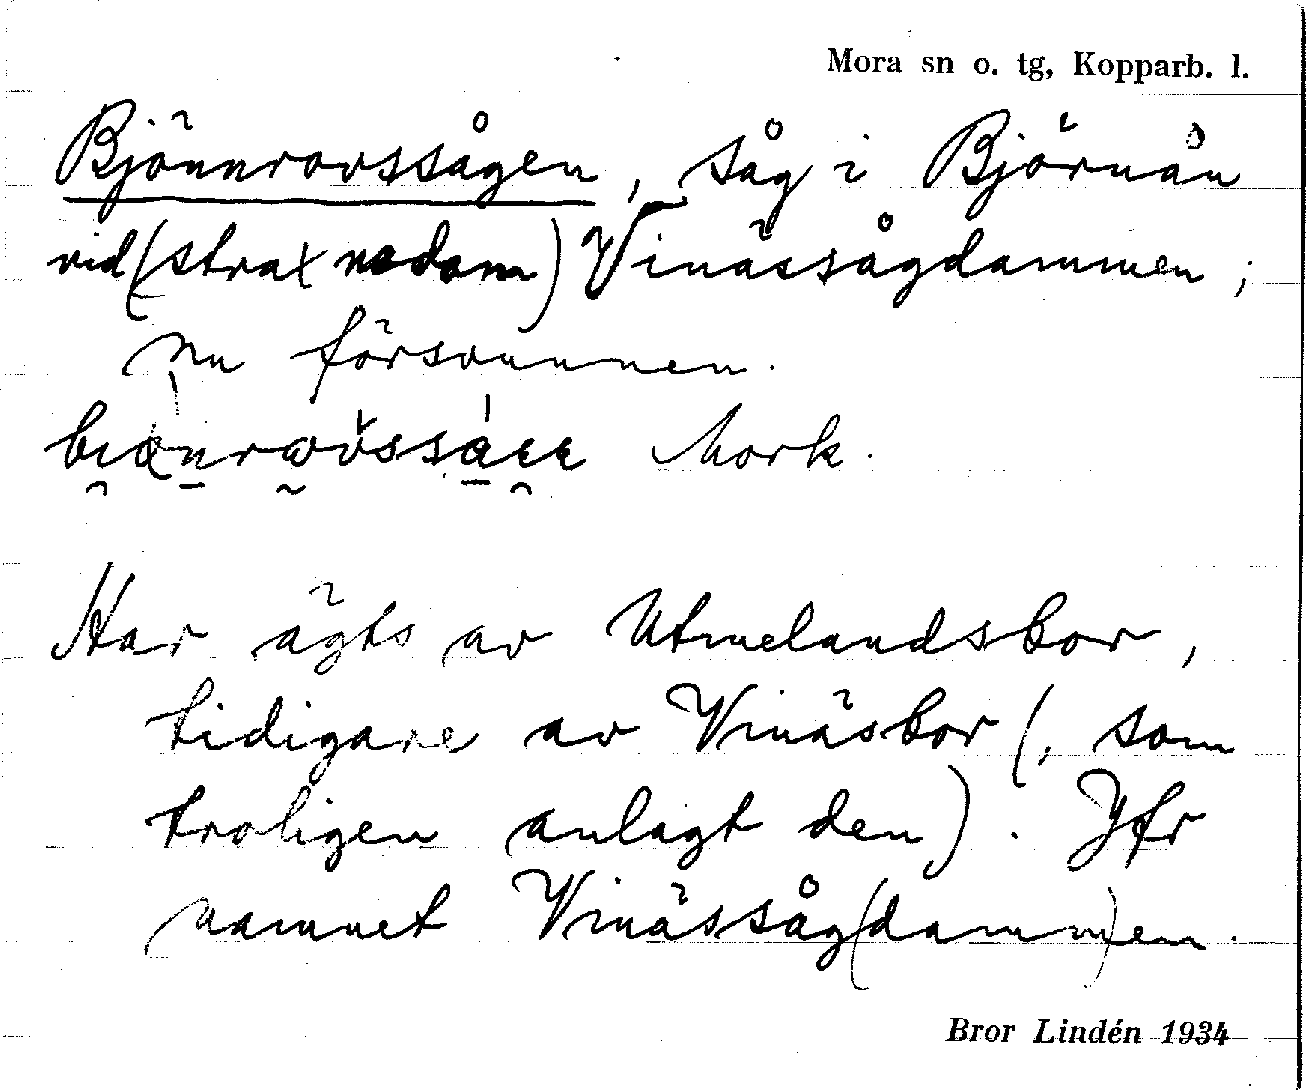 Mora sn o. tg, Kopparb. l.
Bjönnrovssågen, såg i Björnån
vid (strax nedom) Vinässågdammen;
nu försvunnen.
Mork.
Har ägts av Utmelandsbor,
tidigare av Vinäsbor (, som
troligen anlagt den). Jfr
namnet Vinässåg(damm)en.
Bror Lindén 1934